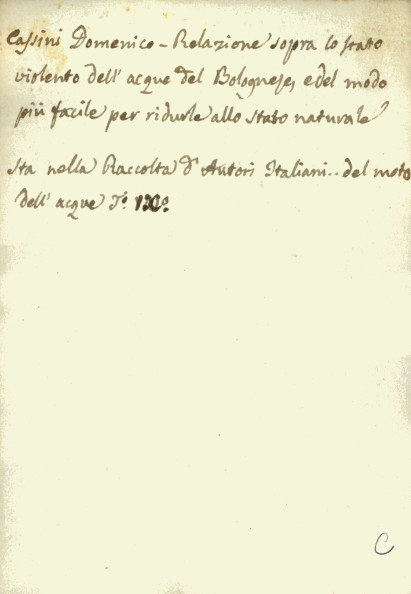 Cassini Domenico - Relazione sopra lo stato
violento dell' acque del Bolognese, e del modo
più facile per ridurle allo stato naturale
sta nella Raccolta d' Autori Italiani.. del moto
dell' acque T.º
C